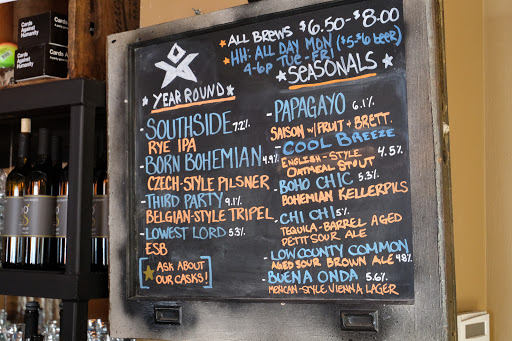 Cards
Against
Humanity
Cards
Against
Humanity
ALL BREWS $6.50-$8.00
HH: ALL DAY MON ($5-$6 BEER)
4-6p TUE-FRI
YEAR ROUND
-SOUTHSIDE 7.2%
RYE IPA
-BORN BOHEMIAN 4.9%
CZECH-STYLE PILSNER
-THIRD PARTY 9.1%
BELGIAN-STYLE TRIPEL
-LOWEST LORD 5.3%
ESB
ASK ABOUT
OUR CASKS!
SEASONALS
-PAPAGAYO 6.1%
SAISON W/ FRUIT + BRETT
-COOL BREEZE 4.5%
ENGLISH-STYLE
OATMEAL STOUT
-BOHO CHIC 5.3%
BOHEMIAN KELLERPILS
-CHI CHI 5%
TEQUILA-BARREL AGED
PETIT SOUR ALE
-LOW COUNTY COMMON
AGED SOUR BROWN ALE 4.8%
-BUENA ONDA 5.6%
MEXICAN-STYLE VIENNA LAGER